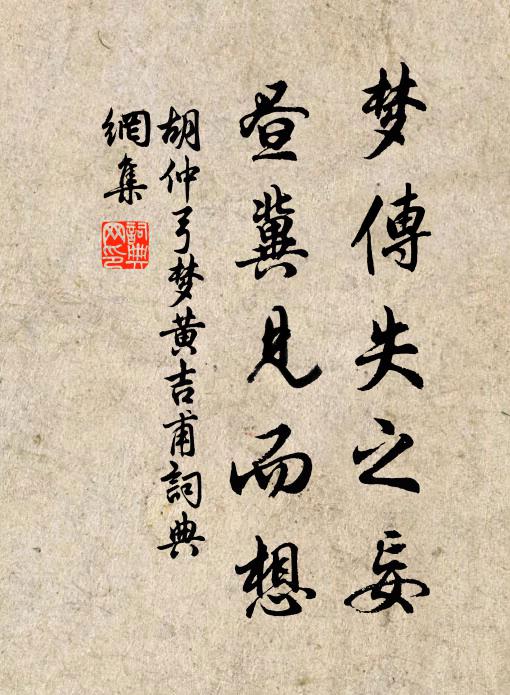 梦傳失之妄
昼冀見而想
胡仲弓梦黄吉甫詞典
網集
詞典
网印